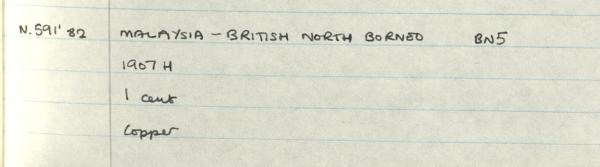 N.591'82 MALAYSIA - BRITISH NORTH BORNEO BN5
1907 H
1 cent
Copper